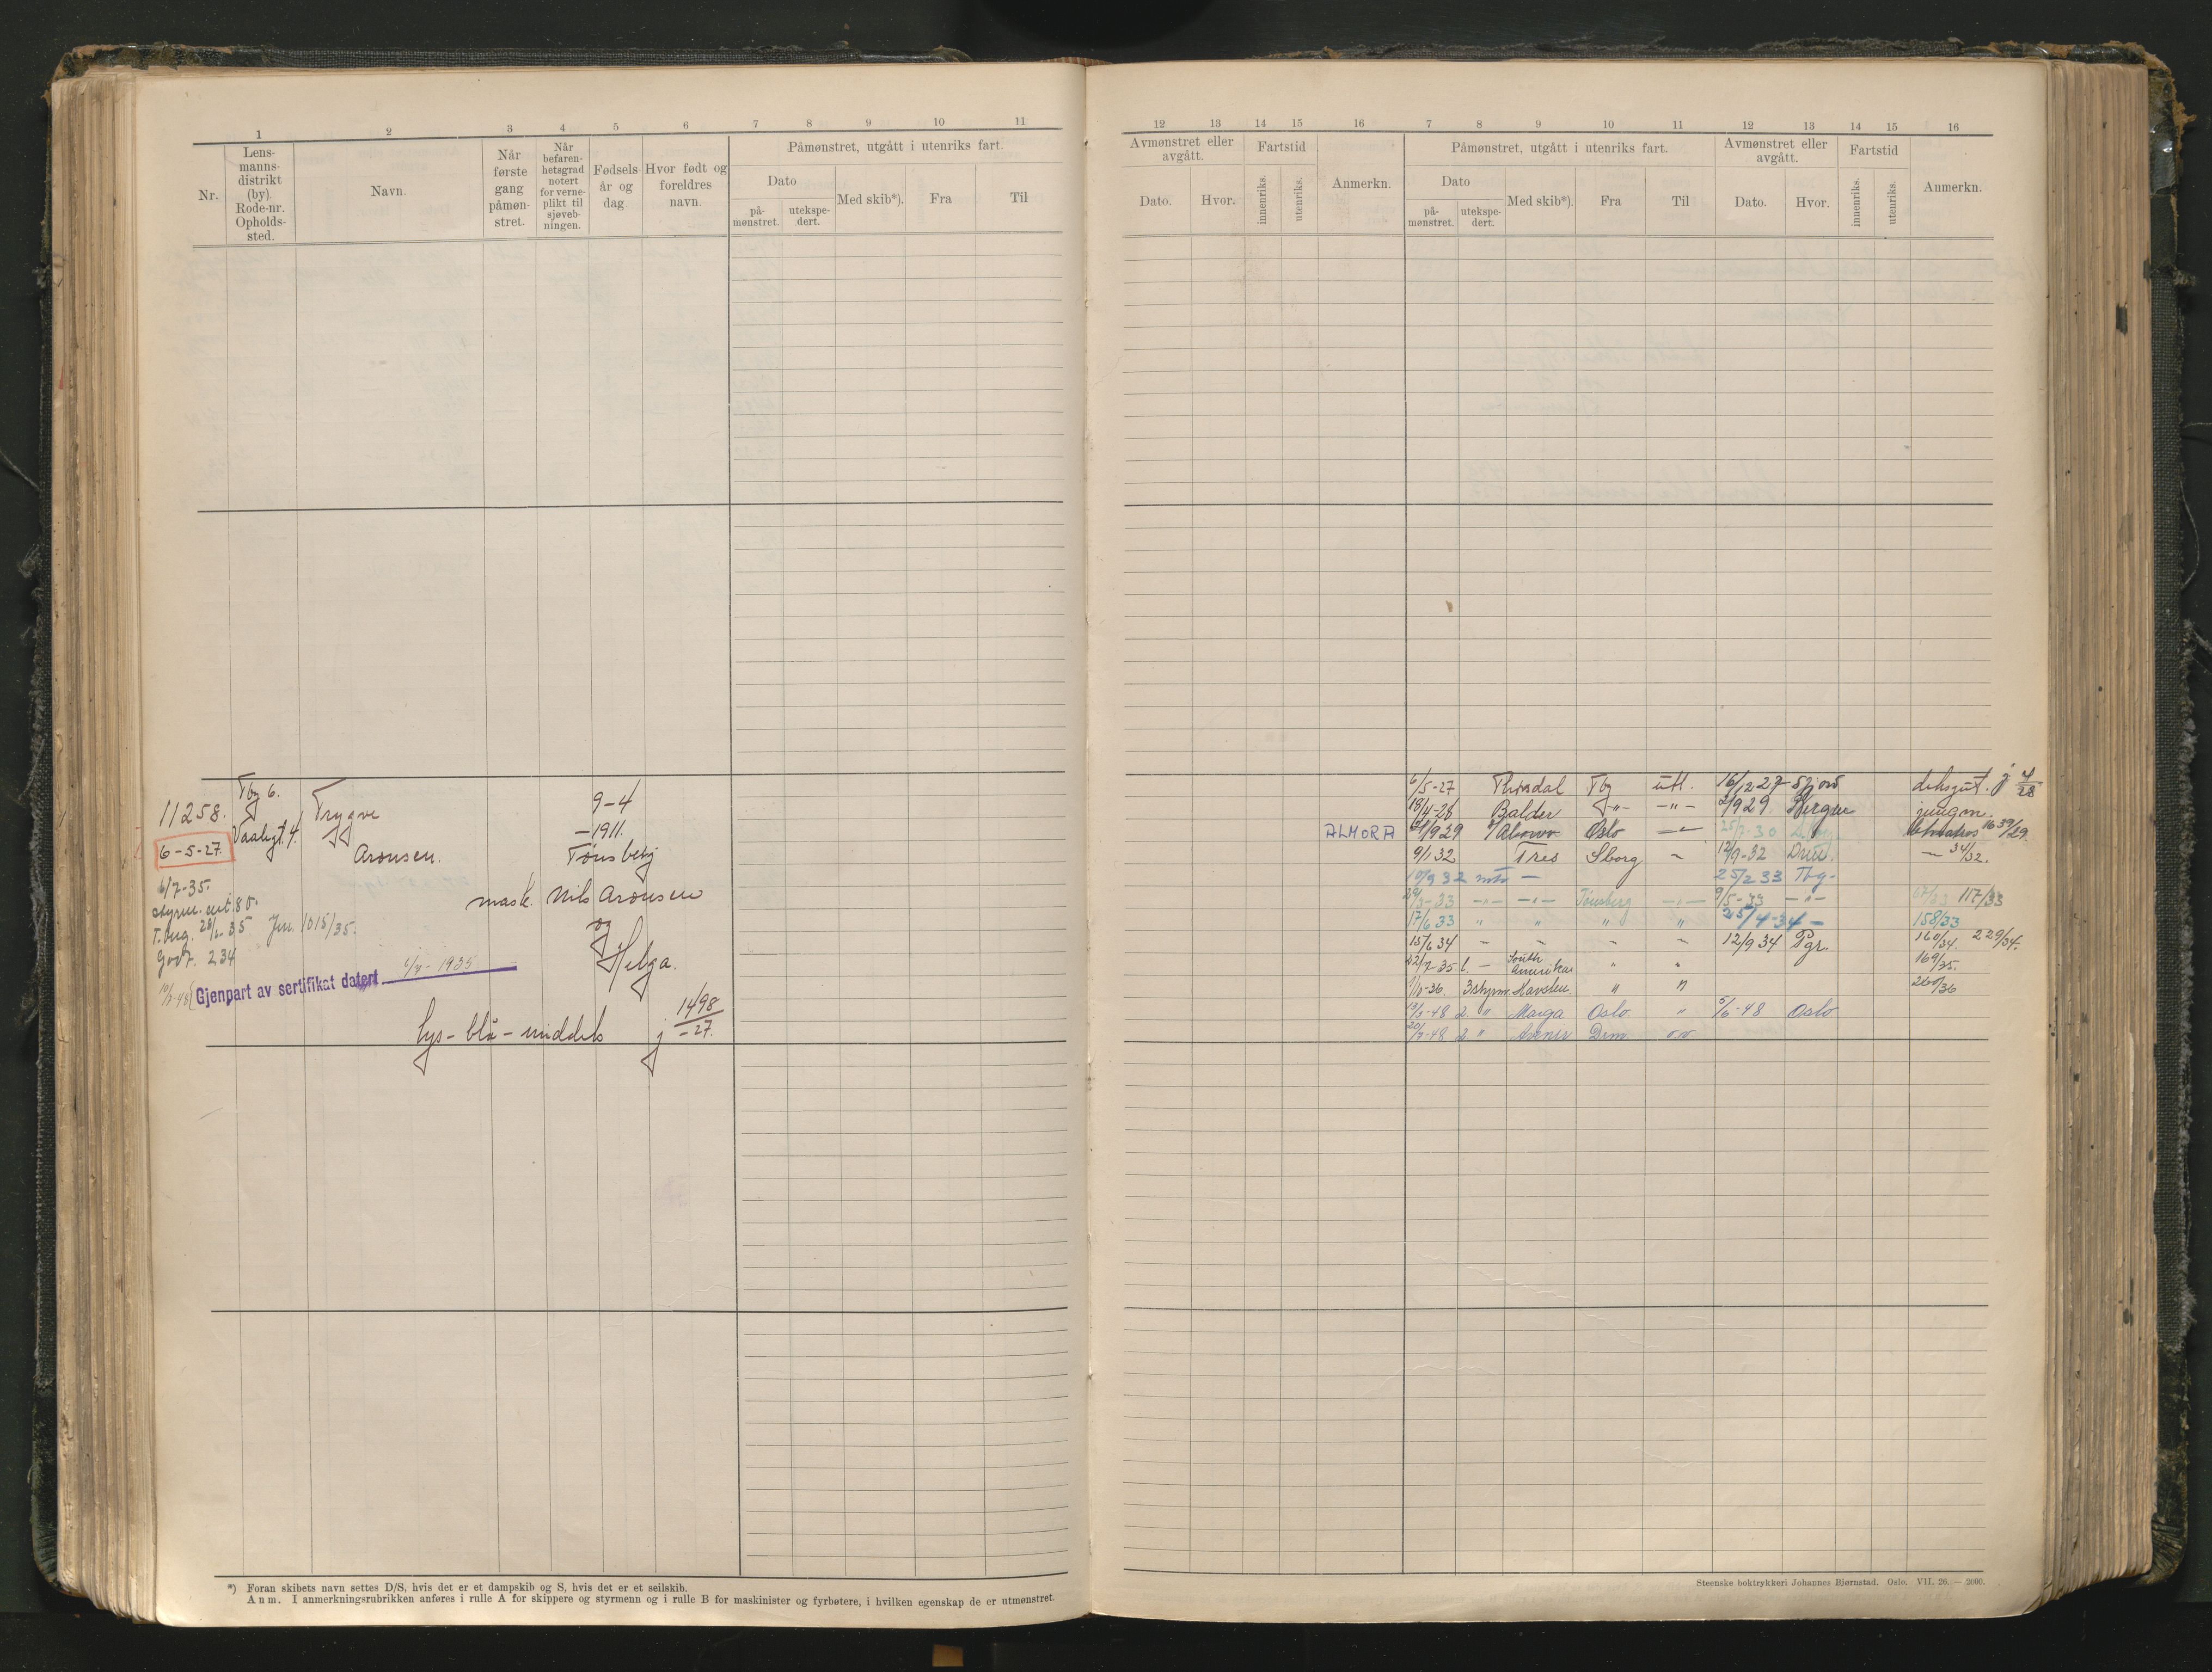 1 2 3 4 5 6 7 8 9 10 11
Nr.
Lens-
manns-
distrikt
(by).
Rode-nr.
Opholds-
sted.
Navn.
Når
første
gang
påmøn-
stret.
Når
befaren-
hetsgrad
notert
for verne-
plikt til
sjøveb-
ningen.
Fødsels-
år og
dag
Hvor født og
foreldres
navn.
Påmønstret, utgått i utenriks fart.
Dato
på-
mønstret.
utekspe-
dert.
Med skib*).
Fra
Til
11258.
6-5-27.
Tbg 6.
Vaalegt. 4.
Trygve
Aronsen.
9-4
-1911.
Tønsberg
mask. Nils Aronsen
og
Helga.
6/7-35.
T.brg.
Jnr. 1015/35.
Godt. 234
Gjenpart av sertifikat datert 6/7-1935
lys-blå-middels j 1498/-27.
*) Foran skibets navn settes D/S, hvis det er et dampskib og S, hvis det er et seilskib.
Anm. I anmerkningsrubrikken anføres i rulle A for skippere og styrmenn og i rulle B for maskinister og fyrbøtere, i hvilken egenskap de er utmønstret.
12 13 14 15 16 7 8 9 10 11 12 13 14 15 16
Avmønstret eller
avgått.
Dato.
Hvor.
Fartstid
innenriks.
utenriks.
Anmerkn.
Påmønstret, utgått i utenriks fart.
Dato
på-
mønstret.
utekspe-
dert.
Med skib*).
Fra
Til
Avmønstret eller
avgått.
Dato.
Hvor.
Fartstid
innenriks.
utenriks.
Anmerkn.
6/5-27 Thorsdal Tbg utl. 16/12 27 Sfjord deksgut. j 4/28
18/4-28 Balder -"- -"- 2/9 29 Bergen jungm.
ALMORA 21/9 29 Oslo 25/7-30 39/29.
9/1 32 Tres Sborg 12/9-32 Drm. - 34/32.
10/9 32 - 25/2 33 Tbg-
29/3-33 -"- -"- Tønsberg -"- 9/5-33 -"- 67/33 117/33
17/6 33 " " " " 25/4-34 - 158/33
15/6 34 - - - - 12/9 34 Pgr. 160/34. 229/34.
22/7-35 l. - South Amerika " " 169/35.
3 styrm. Havsten " " 260/36
13/3-48 2. " Marga Oslo " 5/6-48 Oslo
20/7-48 2 " Avenir Drm. o.v.
Steenske boktrykkeri Johannes Bjørnstad. Oslo. VII. 26. — 2000.